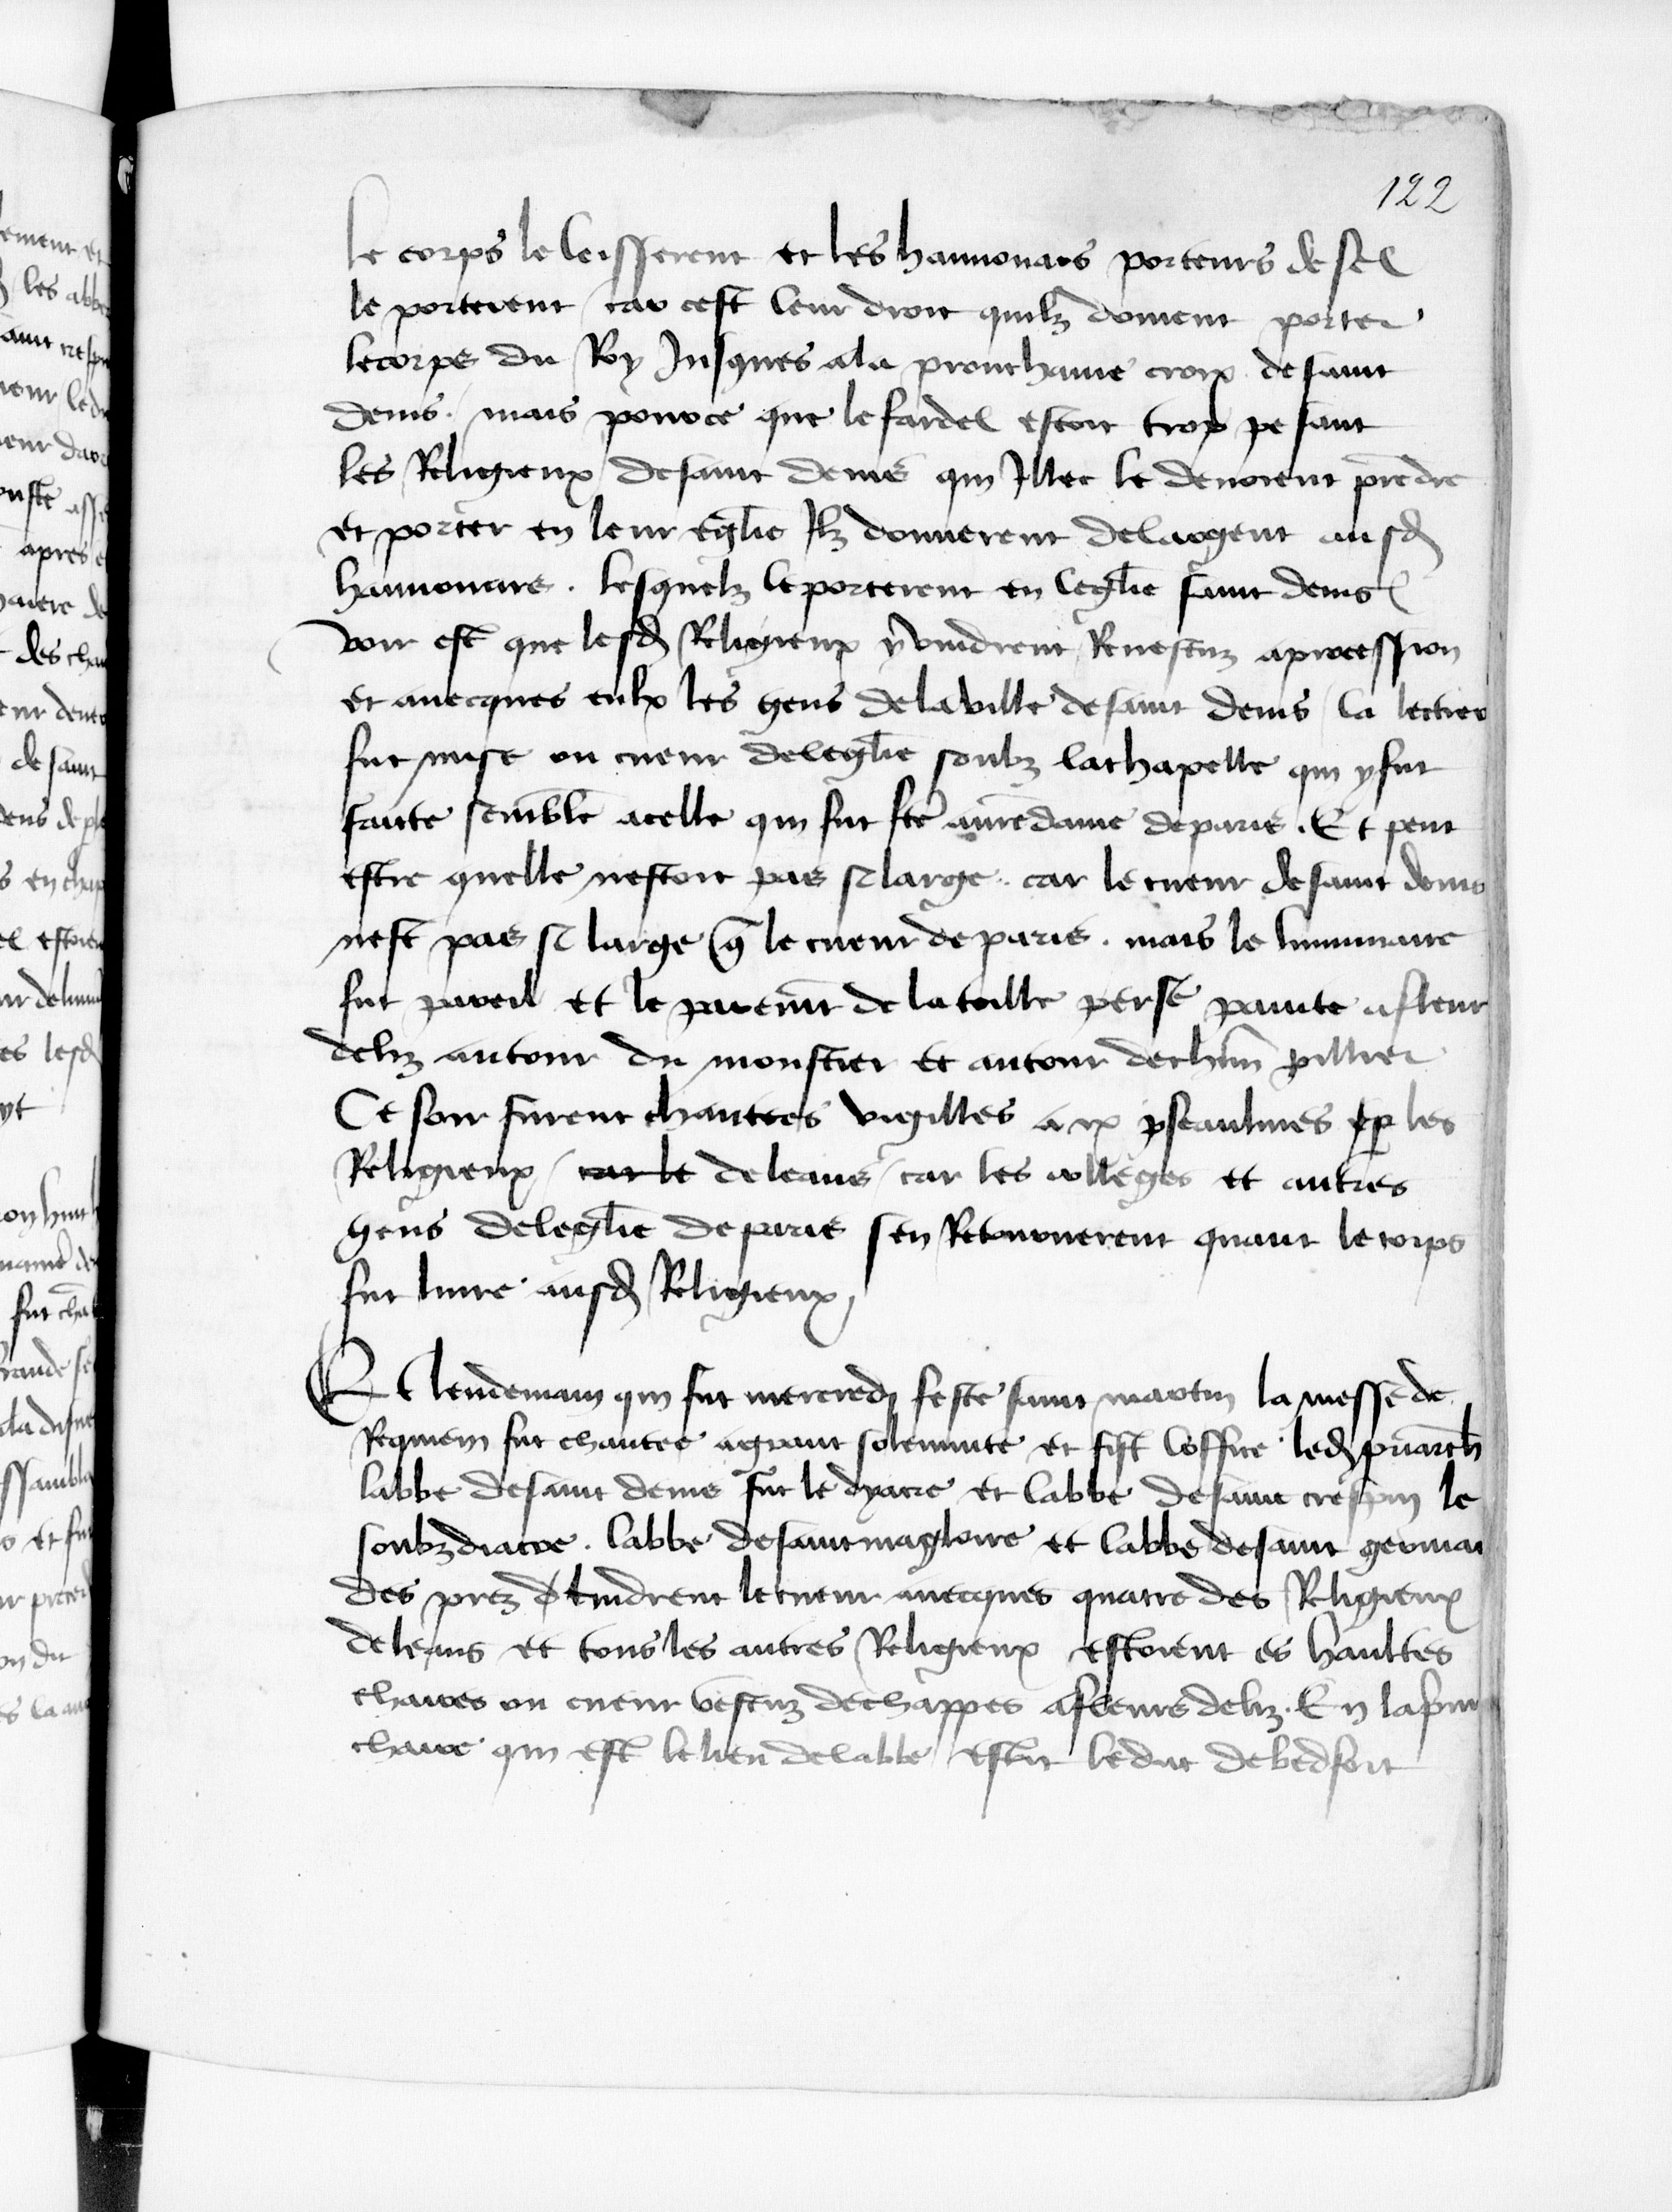 122
le corps le leisserent et les hannonars porteurs de sel
le porterent / car cest leur droit quilz doivent porter
le corps du Roy Jusques a la prouchaine croix de saint
denis . mais pour ce que le fardel estoit trop pesant
les Religieux de saint denis qui Illec le devoient prendre
et porter en leur eglise Ilz donnerent de largent ausd
hannonars . lesquelz le porterent en leglise saint denis
voir est que lesd Religieux y vindrent Revestuz a procession
et avecques eulx les gens de la ville de saint denis / la lectiere
fut mise ou cueur de leglise soubz la chapelle qui y fut
faicte semble a celle qui fut fte a nre dame de paris . Et peut
estre quelle nestoit pas si large . car le cueur de saint denis
nest pas si large q le cueur de paris . mais le luminaire
fut pareil et le parement de la toille perse painte a fleur
de liz autour du monstier et autour de chun pillier
Ce soir furent chantees vigilles a ix pseaulmes p les
Religieux / car le de leans / car les colleges et autres
gens de leglise de paris sen Retournerent quant le corps
fut livre ausd Religieux /
Et lendemain qui fut mercredi feste saint martin la messe de
Requiem fut chantee a grant solemnite et fist loffice led priarch
labbe de saint denis fut le dyacre et labbe de saint crespin le
soubzdiacre . labbe de saint magloire et labbe de saint germai
des prez tindrent le cueur avecques quatre des Religieux
de leans et tous les autres Religieux estoient es haultes
chaires ou cueur vestuz de chappes a fleurs de liz . En la pm
chaire qui est le lieu de labbe / estoit le duc de bedfort